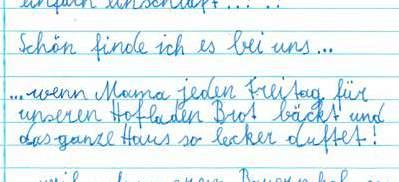 einfach einschläft...!..
Schön finde ich es bei uns...
...wenn Mama jeden Freitag für
unseren Hofladen Brot bäckt und
das ganze Haus so lecker duftet!